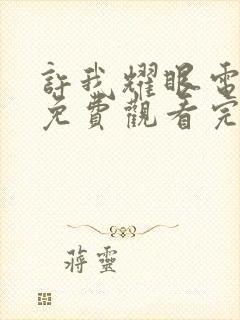 許我耀眼電
免費觀看完
蔣靈